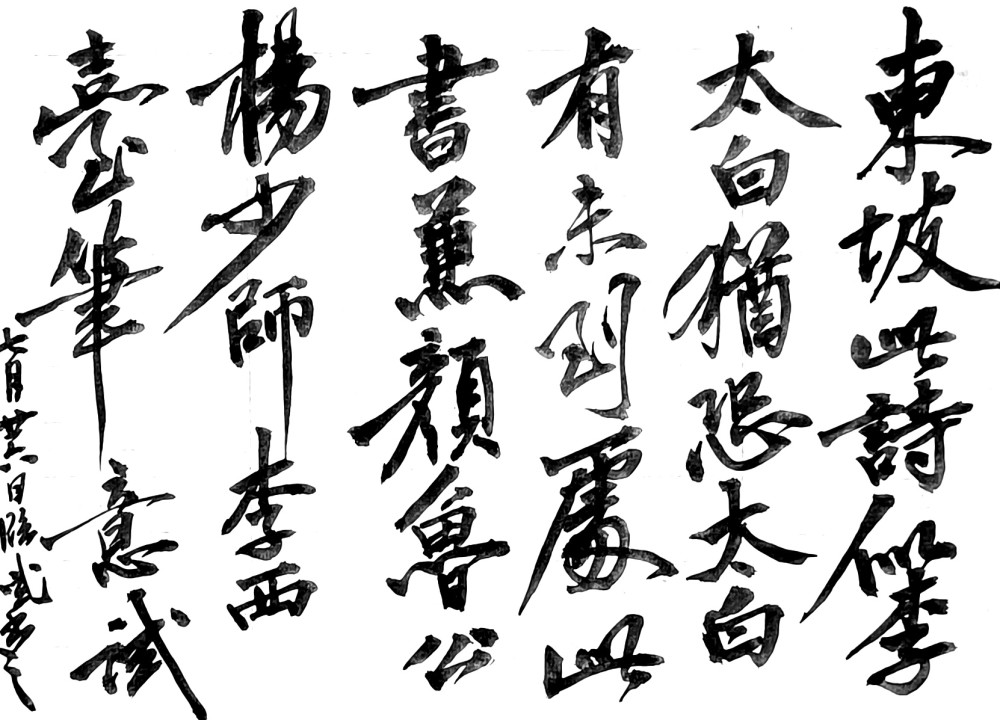 東坡此詩似李
太白猶恐太白
有未到處此
書兼顏魯公
楊少師李西
臺筆意試
七月廿六日臨